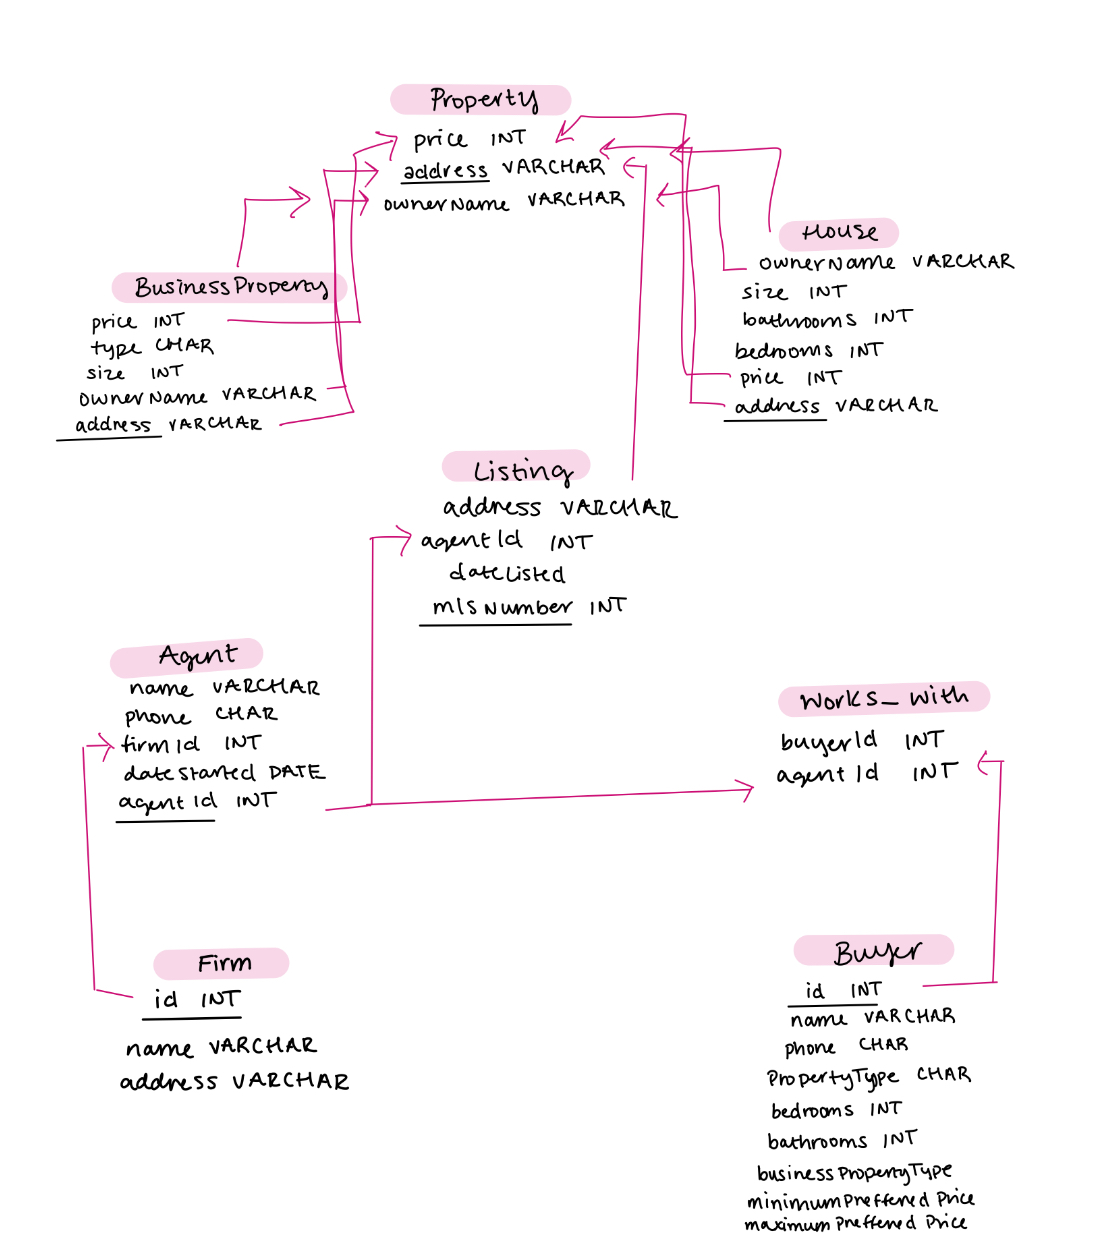 Property
price INT
address VARCHAR
ownerName VARCHAR
House
ownerName VARCHAR
size INT
bathrooms INT
bedrooms INT
price INT
address VARCHAR
BusinessProperty
price INT
type CHAR
size INT
ownerName VARCHAR
address VARCHAR
Listing
address VARCHAR
agentId INT
dateListed
mlsNumber INT
Agent
name VARCHAR
phone CHAR
firmId INT
dateStarted DATE
agentId INT
Works_With
buyerId INT
agentId INT
Firm
id INT
name VARCHAR
address VARCHAR
Buyer
id INT
name VARCHAR
phone CHAR
PropertyType CHAR
bedrooms INT
bathrooms INT
businessPropertyType
minimumPreffered Price
maximumPreffered Price